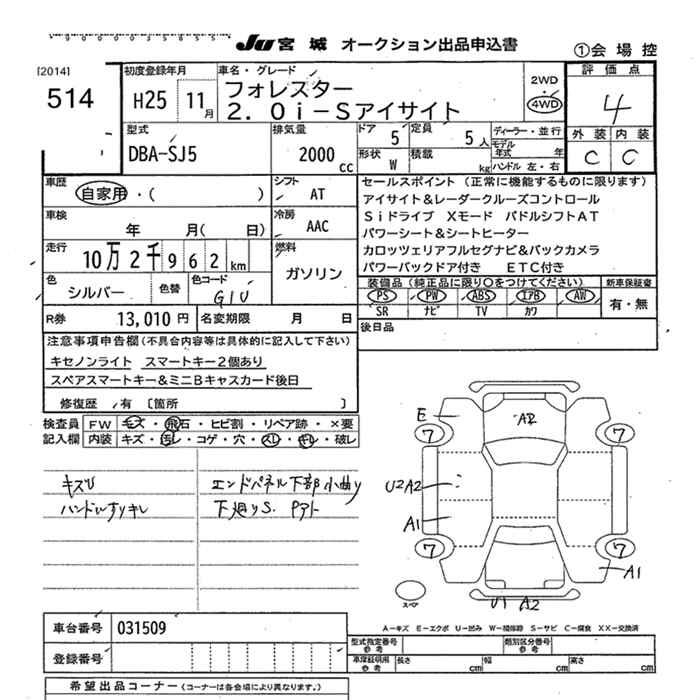 JU 宮城 オークション出品申込書
①会場控
[2014]
514
初度登録年月
H25 11月
車名・グレード
フォレスター
2.0i-Sアイサイト
2WD
4WD
評価点
4
外装 内装
C C
型式
DBA-SJ5
排気量
2000 cc
ドア 5
定員 5人
形状 W
積載 kg
ディーラー・並行
モデル年式 年
ハンドル 左・右
車歴
自家用・( )
シフト
AT
車検
年 月( 日)
冷房
AAC
走行
10万2千962km
燃料
ガソリン
色
シルバー
色替
色コード
G1U
R券 13,010円
名変期限 月 日
セールスポイント (正常に機能するものに限ります)
アイサイト&レーダークルーズコントロール
Siドライブ Xモード パドルシフトAT
パワーシート&シートヒーター
カロッツェリアフルセグナビ&バックカメラ
パワーバックドア付き ETC付き
装備品(純正品に限り○をつけてください)
新車保証書
PS PW ABS エアB AW
SR ナビ TV カワ
有・無
後日品
注意事項申告欄(不具合内容等は具体的に記入して下さい)
キセノンライト スマートキー2個あり
スペアスマートキー&ミニBキャスカード後日
修復歴 ・有 〔箇所 〕
検査員
記入欄
FW キズ・飛石・ヒビ割・リペア跡・×要
内装 キズ・汚レ・コゲ・穴・スレ・キレ・破レ
キズU
ハンドルすりキレ
エンドパネル下部小曲り
下廻りS. Pアト
E
A2
7
7
U2A2
A1
7
7
A1
U1 A2
スペア
A-キズ E-エクボ U-凹み W-補修跡 S-サビ C-腐食 XX-交換済
車台番号 031509
登録番号
型式指定番号
参考
類別区分番号
参考
車庫証明用
参考
長さ cm
幅 cm
高さ cm
希望出品コーナー (コーナーは各会場により異なります。)